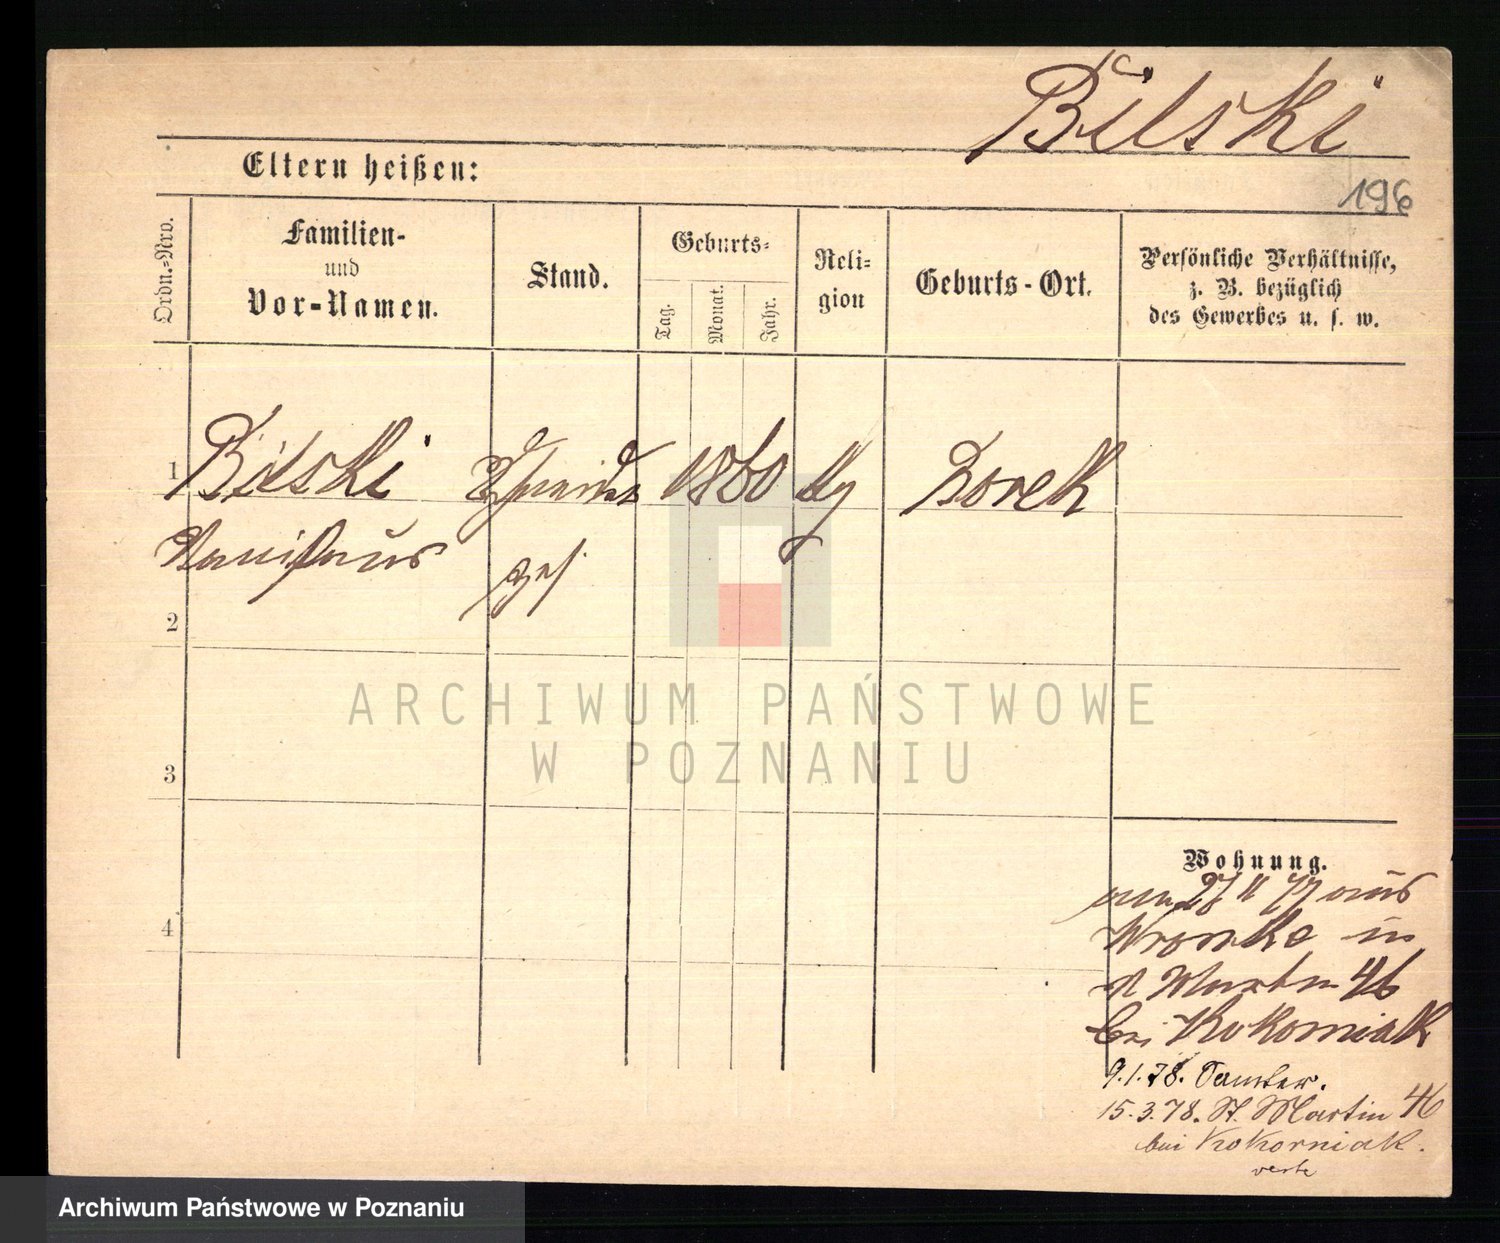 Bilski
196
Eltern heißen:
Ordn.-Nro.
Familien-
und
Vor-Namen.
Stand.
Geburts-
Tag.
Monat.
Jahr.
Reli-
gion
Geburts-Ort.
Persönliche Verhältnisse,
z. B. bezüglich
des Gewerbes u. s. w.
1
Bilski
Schneider
1860
Borek
Stanislaus
2
3
4
Wohnung.
aus
Wronke in
St Martin 46
bei Kokorniak
9.1.78. Samter.
15.3.78. St. Martin 46
bei Kokorniak.
verte
ARCHIWUM PAŃSTWOWE
W POZNANIU
Archiwum Państwowe w Poznaniu